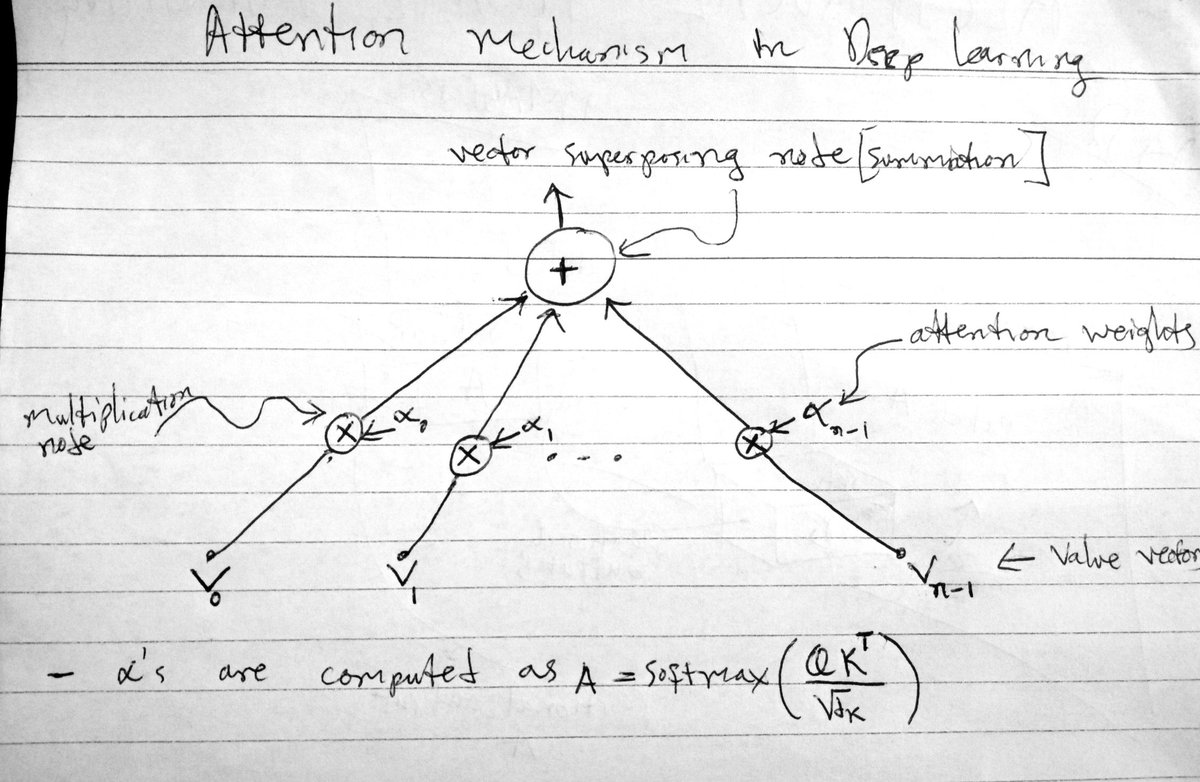 Attention Mechanism in Deep Learning
vector superposing node [summation]
+
attention weights
multiplication
node
× α₀ × α₁ . - . × αₙ₋₁
V₀ V₁ Vₙ₋₁ ← Value vector
- α's are computed as A = softmax(QKᵀ/√dₖ)